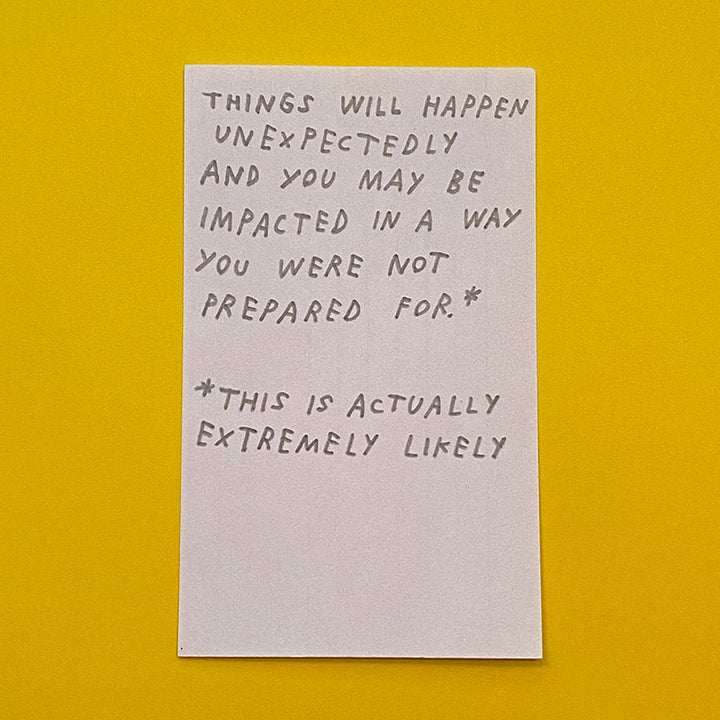 THINGS WILL HAPPEN
UNEXPECTEDLY
AND YOU MAY BE
IMPACTED IN A WAY
YOU WERE NOT
PREPARED FOR.*
*THIS IS ACTUALLY
EXTREMELY LIKELY